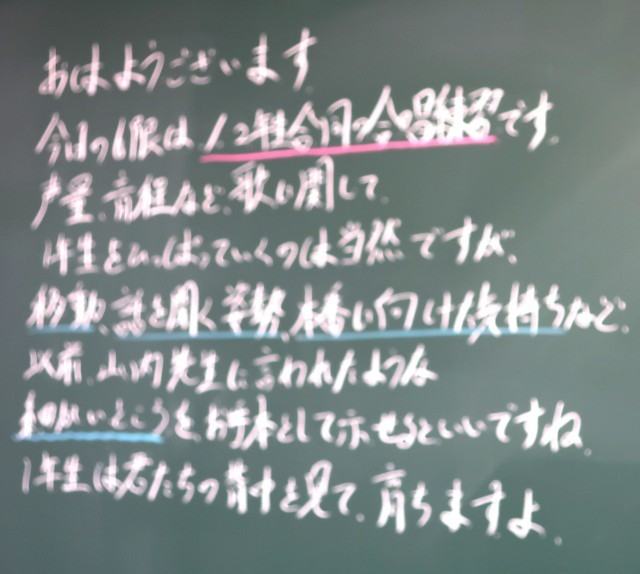 おはようございます
今日の6限は1、2年生合同の合唱練習です。
声量、音程など、歌に関して、
1年生をひっぱっていくのは当然ですが、
移動、話を聞く姿勢、本番に向けた気持ちなど、
以前、山内先生に言われたような
細かいところをお手本として示せるといいですね。
1年生は君たちの背中を見て、育ちますよ。